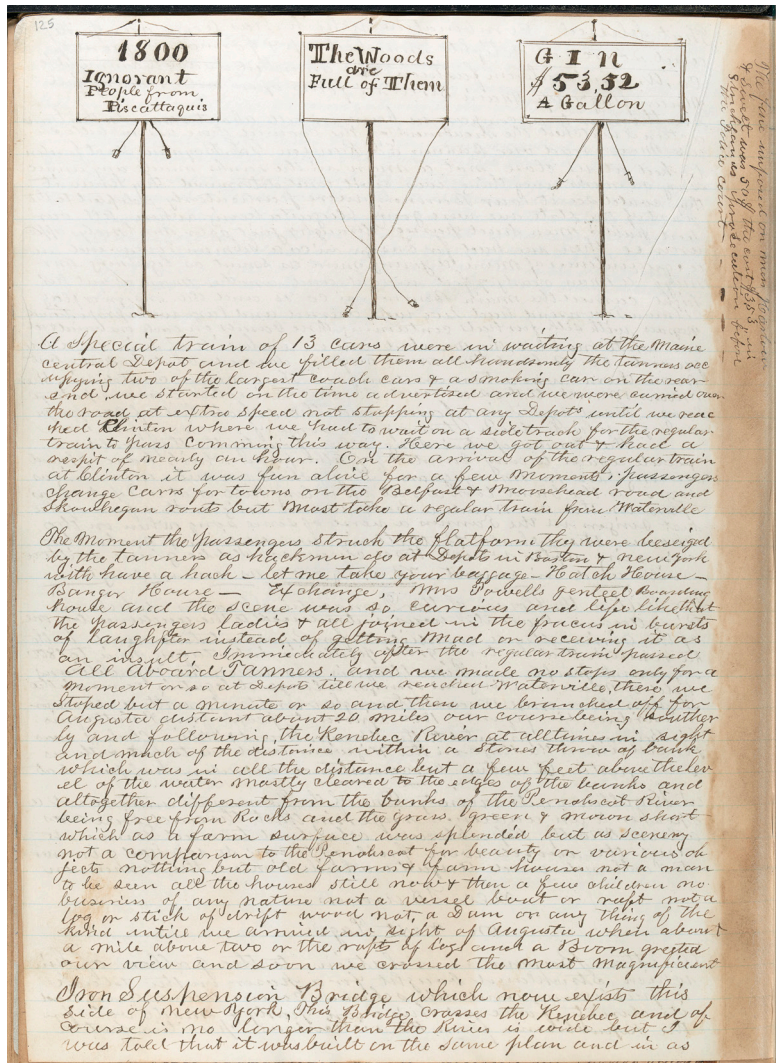 125
1800
Ignorant
People from
Piscattaquis
The Woods
are
Full of Them
GIN
$ 53,52
A Gallon
The fine imposed on miss
& Sweet was 50 $ the cost $ 353 in
prosecution before
the Police Court
A Special train of 13 cars were in waiting at the Maine
central Depot and we filled them all handsomly the tanners occ
upying two of the largest coach cars & a smoking car on the rear
end, we started on the time advertised and we were carried over
the road at extra speed not stopping at any Depots until we reac
hed Clinton where we had to wait on a side track for the regular
train to pass comming this way. Here we got out & had a
respit of nearly an hour. On the arrival of the regular train
at Clinton it was fun alive for a few moments, passengers
change carrs for towns on the Belfast & Moosehead road and
Skowhegan route but must take a regular train from Waterville
The Moment the passengers struck the flatform they were beseiged
by the tanners as hackmen do at Depots in Boston & New York
with have a hack – let me take your baggage – Hatch House –
Bangor House – Exchange, Mrs Powells genteel Boarding
house and the scene was so curious and life like that
the passengers ladies & all joined in the fracus in bursts
of laughfter instead of getting mad or receiving it as
an insult, Immediately after the regular train passed
All Aboard Tanners. and we made no stops only for a
moment or so at Depots till we reached Waterville, there we
stoped but a minute or so and then we branched off for
Augusta distant about 20 miles our course being Souther
ly and following the Kenebec River at all times in sight
and much of the distance within a stones throw of bank
which was in all the distance but a few feet above the lev
el of the water mostly cleared to the edges of the banks and
altogether different from the banks of the Penobscot River
being free from Rocks and the grass green & mown short
which as a farm surface was splendid but as scenery
not a comparison to the Penobscot for beauty or various ob
jects nothing but old farms & farm houses not a man
to be seen all the houses still now & then a few children no
business of any nature not a vessel boat or raft not a
log or stick of drift wood not, a Dam or any thing of the
kind intile we arrived in sight of Augusta when about
a mile above two or the rafts of logs and a Boom greeted
our view and soon we crossed the most magnificient
Iron Suspension Bridge which now exists this
side of New York, This Bridge crasses the Kenebec and of
course is no longer than the River is wide but I
was told that it was built on the same plan and in as